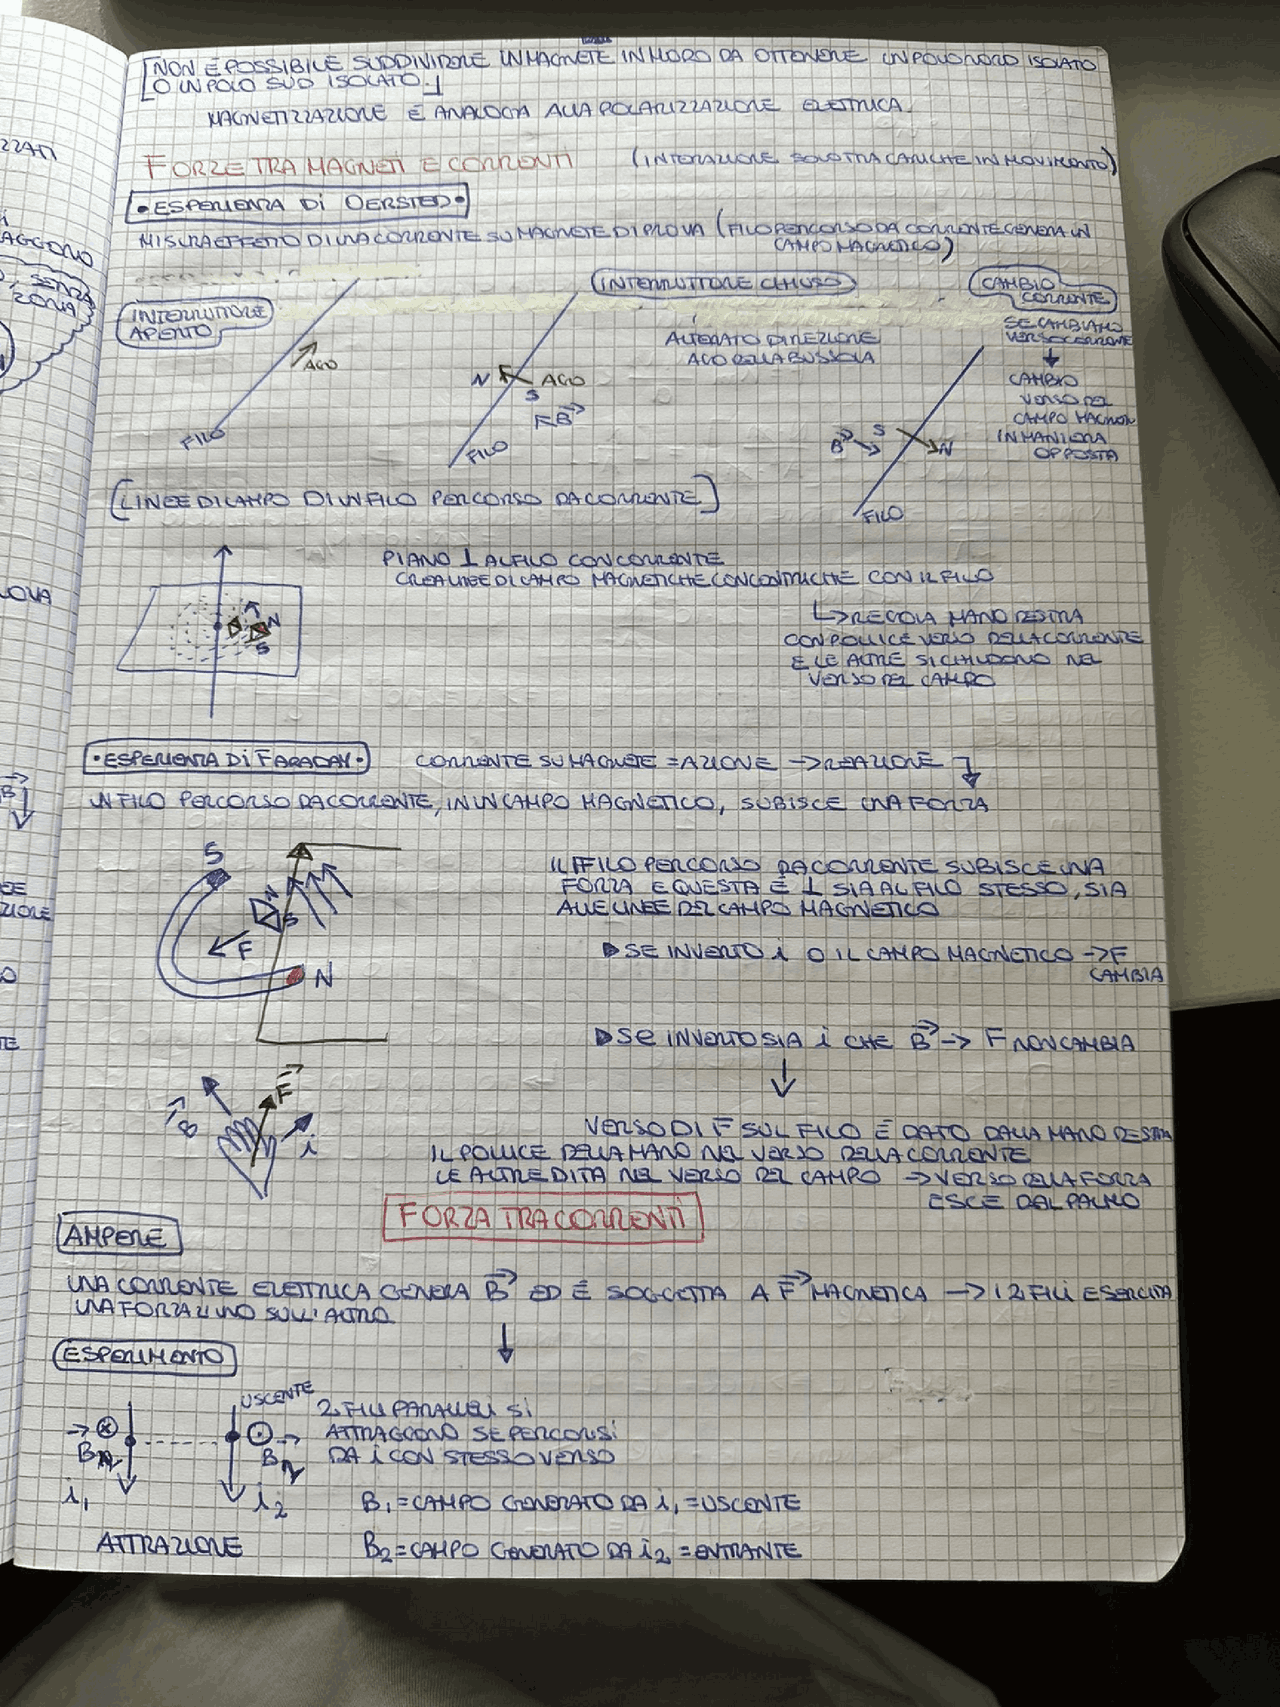 [NON È POSSIBILE SUDDIVIDERE UN MAGNETE IN MODO DA OTTENERE UN POLO NORD ISOLATO
O UN POLO SUD ISOLATO]
MAGNETIZZAZIONE È ANALOGA ALLA POLARIZZAZIONE ELETTRICA
FORZE TRA MAGNETI E CORRENTI (INTERAZIONE SOLO TRA CARICHE IN MOVIMENTO)
• ESPERIENZA DI OERSTED •
MISURA EFFETTO DI UNA CORRENTE SU MAGNETE DI PROVA (FILO PERCORSO DA CORRENTE GENERA UN
CAMPO MAGNETICO)
INTERRUTTORE
APERTO
AGO
FILO
INTERRUTTORE CHIUSO
ALTERATO DIREZIONE
AGO DELLA BUSSOLA
N AGO
S
B
FILO
CAMBIO
CORRENTE
SE CAMBIAMO
VERSO CORRENTE
↓
CAMBIO
VERSO DEL
CAMPO MAGNON
IN MANIERA
OPPOSTA
B → S
N
FILO
[LINEE DI CAMPO DI UN FILO PERCORSO DA CORRENTE]
PIANO ⊥ AL FILO CON CORRENTE
CREA LINEE DI CAMPO MAGNETICHE CONCENTRICHE CON IL FILO
↳ REGOLA MANO DESTRA
CON POLLICE VERSO DELLA CORRENTE
E LE ALTRE SI CHIUDONO NEL
VERSO DEL CAMPO
N
S
• ESPERIENZA DI FARADAY • CORRENTE SU MAGNETE = AZIONE → REAZIONE
UN FILO PERCORSO DA CORRENTE, IN UN CAMPO MAGNETICO, SUBISCE UNA FORZA
S
N
S
F
N
IL FILO PERCORSO DA CORRENTE SUBISCE UNA
FORZA E QUESTA È ⊥ SIA AL FILO STESSO, SIA
ALLE LINEE DEL CAMPO MAGNETICO
▶ SE INVERTO i O IL CAMPO MAGNETICO → F
CAMBIA
▶ SE INVERTO SIA i CHE B → F NON CAMBIA
↓
B
F
i
VERSO DI F SUL FILO È DATO DALLA MANO DESTRA
IL POLLICE DELLA MANO NEL VERSO DELLA CORRENTE
LE ALTRE DITA NEL VERSO DEL CAMPO → VERSO DELLA FORZA
ESCE DAL PALMO
FORZA TRA CORRENTI
AMPERE
UNA CORRENTE ELETTRICA GENERA B ED È SOGGETTA A F MAGNETICA → I 2 FILI ESERCITA
UNA FORZA L'UNO SULL'ALTRO
↓
ESPERIMENTO
USCENTE
2 FILI PARALLELI SI
ATTRAGGONO SE PERCORSI
DA i CON STESSO VERSO
i₁
i₂
B₁ = CAMPO GENERATO DA i₁ = USCENTE
ATTRAZIONE
B₂ = CAMPO GENERATO DA i₂ = ENTRANTE